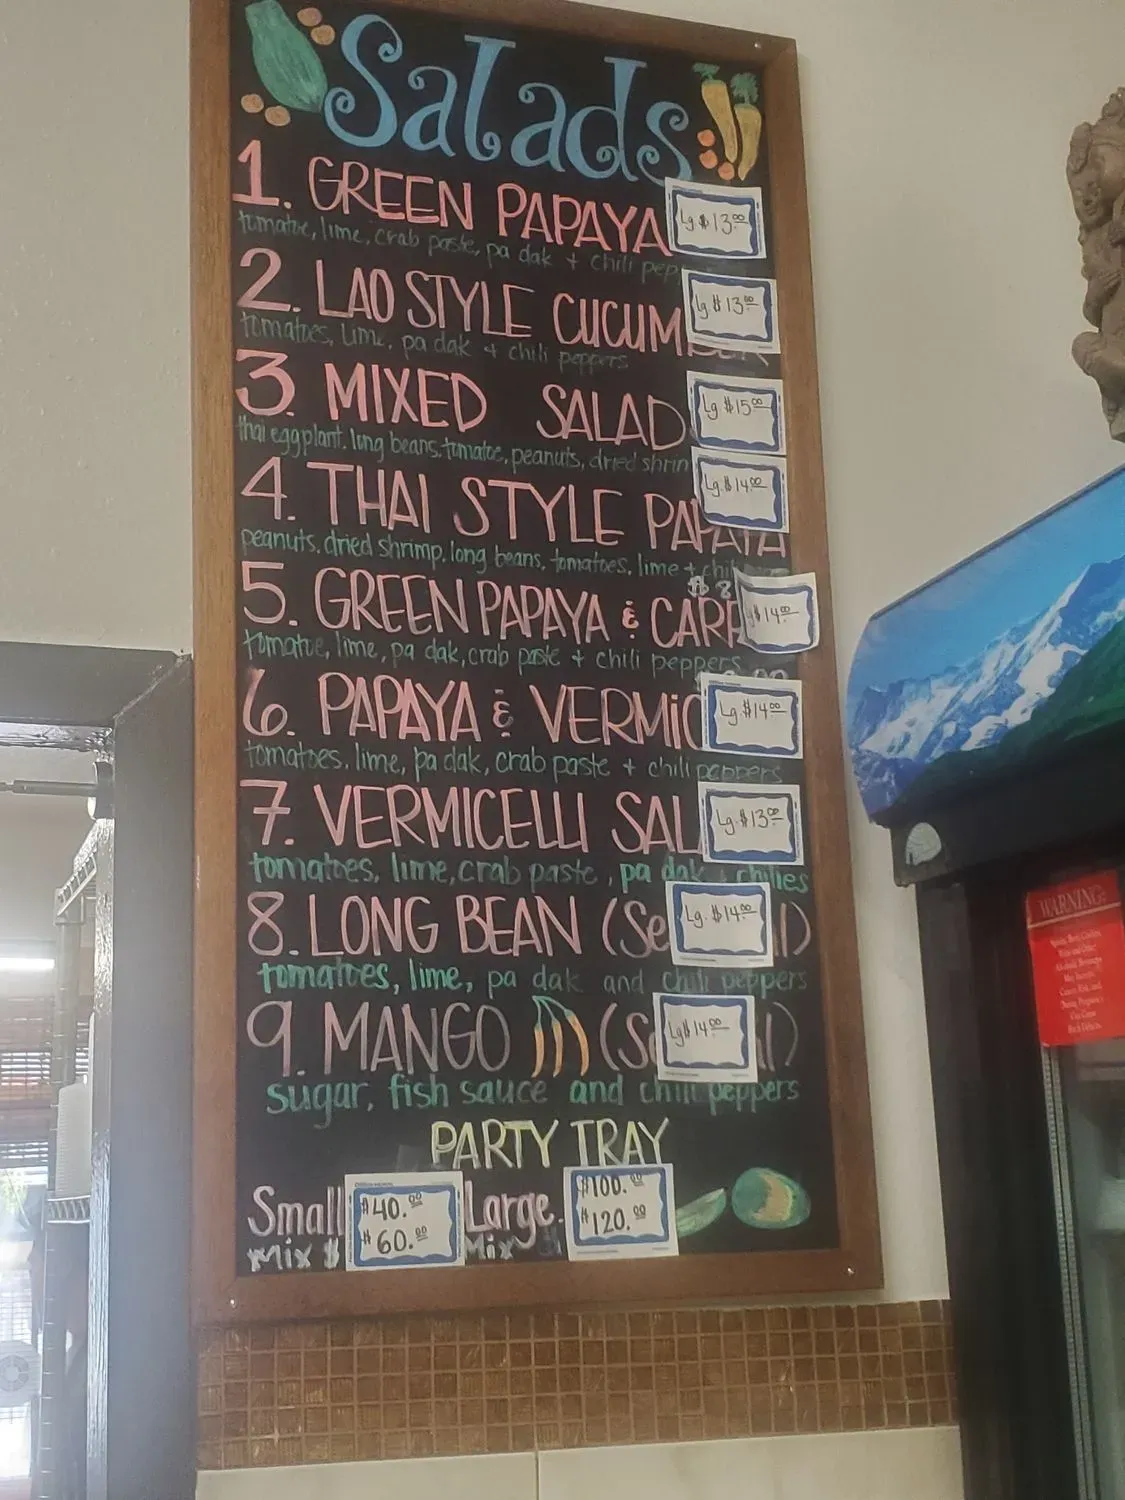 Salads
1. GREEN PAPAYA Lg. $13.00
tomatoe, lime, crab paste, pa dak + chili pep
2. LAO STYLE CUCUM Lg $13.00
tomatoes, lime, pa dak + chili peppers
3. MIXED SALAD Lg $15.00
thai eggplant, long beans, tomatoe, peanuts, dried shrim
4. THAI STYLE PAPAYA Lg. $14.00
peanuts, dried shrimp, long beans, tomatoes, lime + chil
5. GREEN PAPAYA & CARR $14.00
tomatoe, lime, pa dak, crab paste + chili peppers
6. PAPAYA & VERMIC Lg. $14.00
tomatoes, lime, pa dak, crab paste + chili peppers
7. VERMICELLI SAL Lg. $13.00
tomatoes, lime, crab paste, pa dak + chilies
8. LONG BEAN (Se Lg. $14.00 l)
tomatoes, lime, pa dak and chili peppers
9. MANGO (S Lg $14.00 al)
sugar, fish sauce and chili peppers
PARTY TRAY
Small $40.00 Large. $100.00
Mix $ $60.00 Mix $120.00
WARNING: